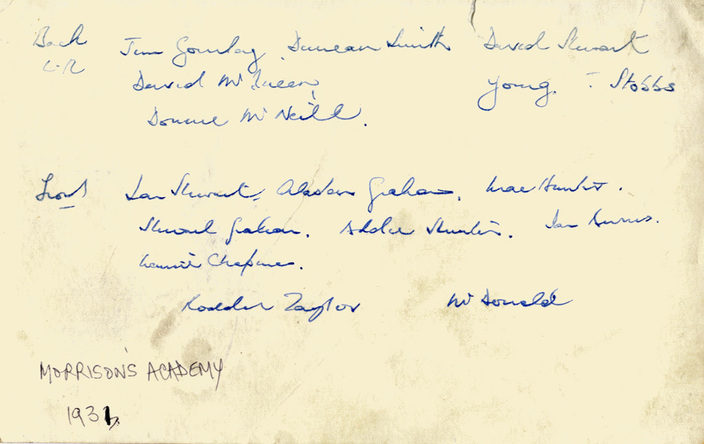 Back Jim Gourlay Duncan Smith David Stewart
L-R
David McQueen Young. ? Stobbs
Donnie McNeill.
Front Ian Stewart, Alastair Graham, Hunter.
Stewart Graham. Eddie Hunter. Ian Burns.
Chapman.
Rodder Taylor McDonald
MORRISON'S ACADEMY
1931.